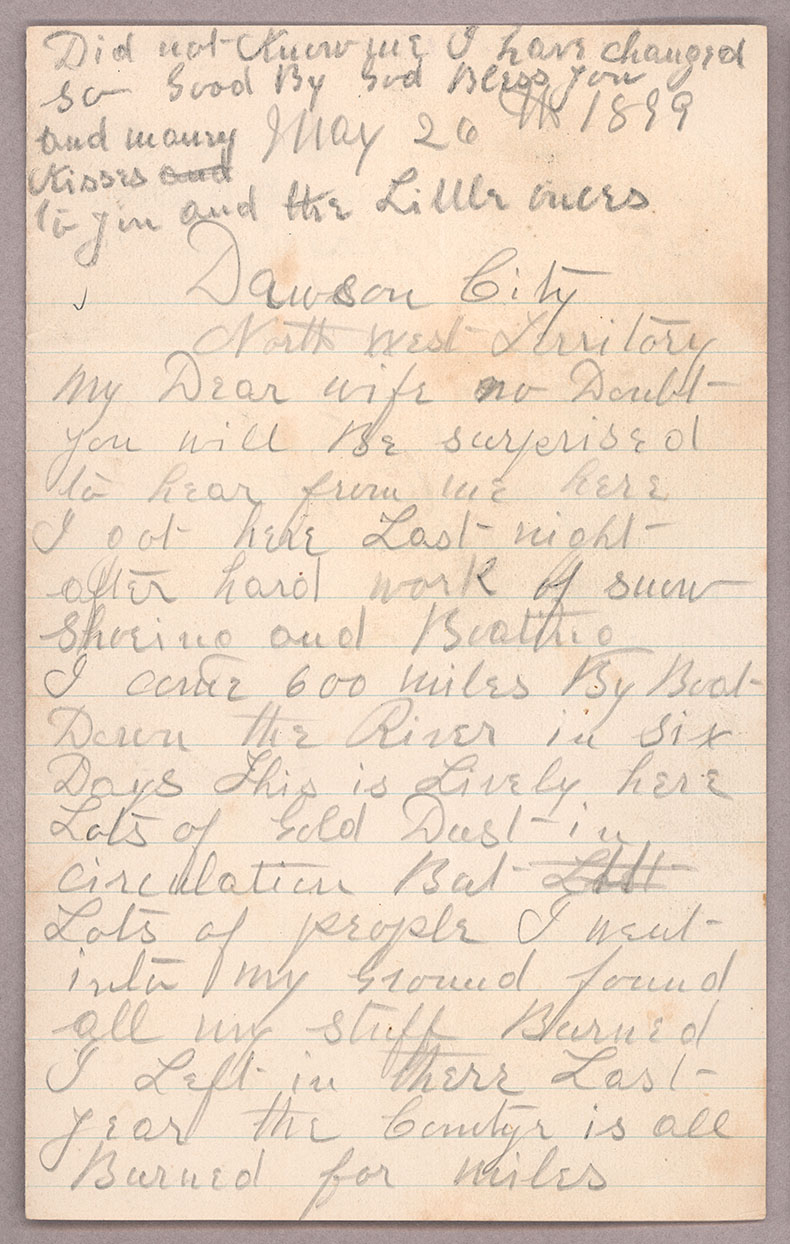 Did not Know me I have changed
so Good By God Bless you
and maney May 26 th 1899
Kisses and
to you and the Little onces
Dawson City
North West Territory
My Dear wife no Doubt
you will Be surprised
to hear from me here
I got here Last night
after hard work of snow
Shoeing and Boatting
I come 600 miles By Boat
Down the River in six
Days This is Lively here
Lots of Gold Dust in
circulation But
Lots of people I went
into my Ground found
all my stuff Burned
I Left in there Last
year the Comtyr is all
Burned for miles